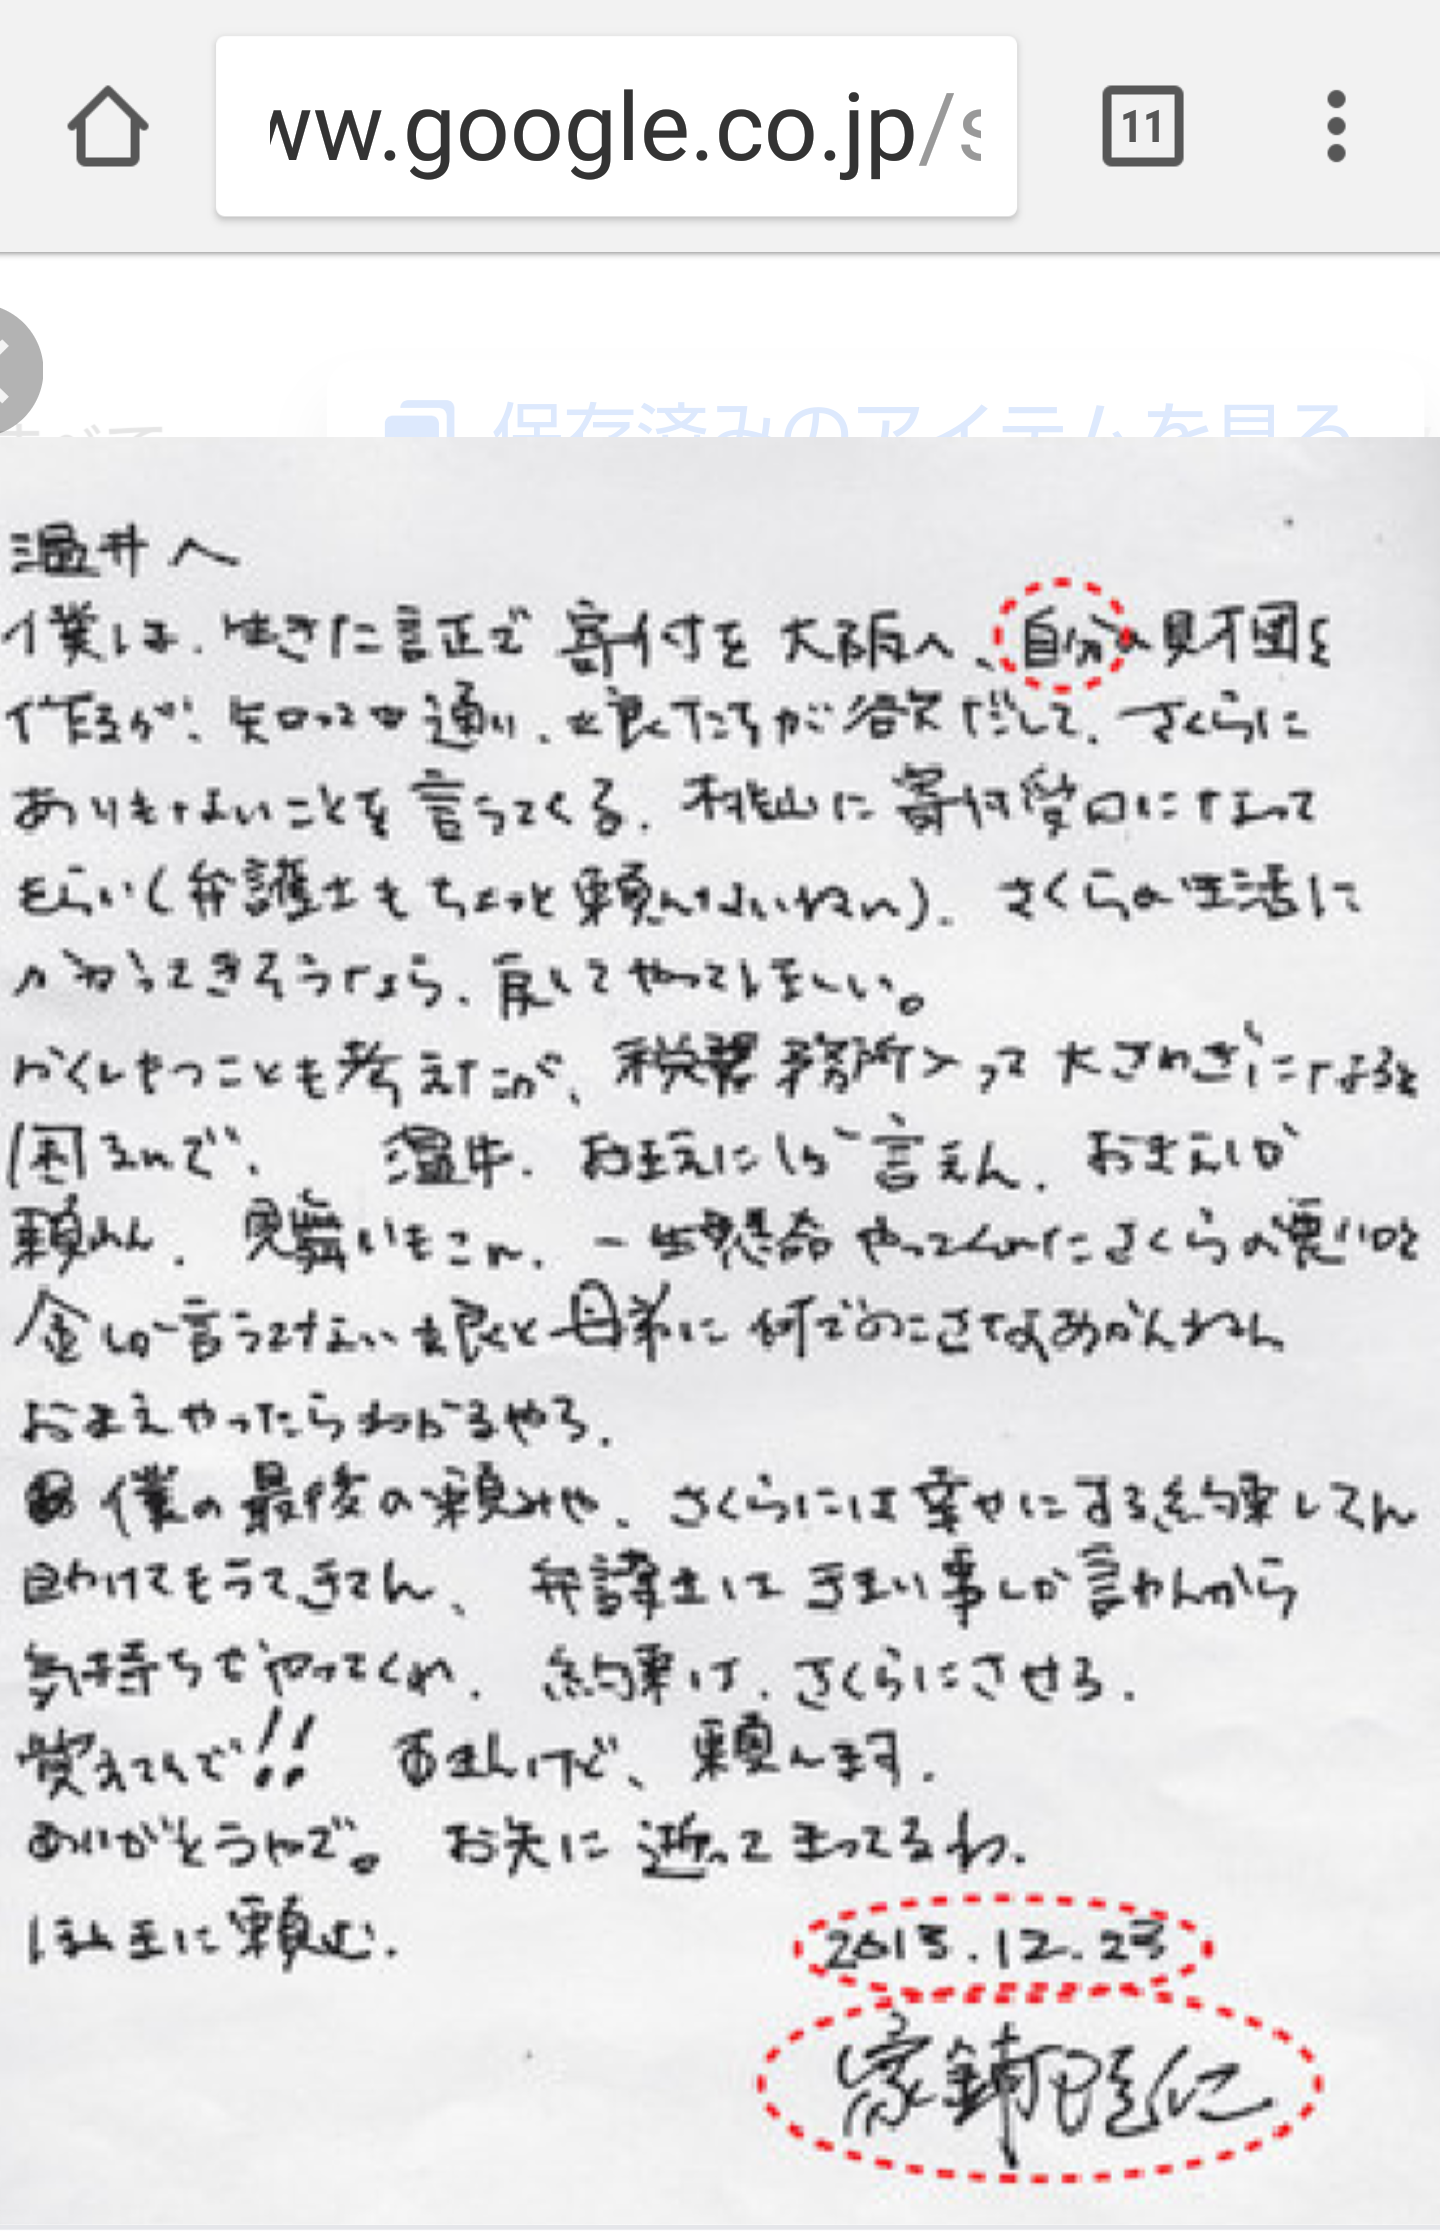 ww.google.co.jp/s
11
すべて
保存済みのアイテムを見る
温井へ
僕は、生きた証正で寄付を大阪へ、自分の財団を
作るが、知っての通り、娘たちが欲だして、さくらに
ありもしないことを言うてくる。桃山に寄付受口になって
もらい(弁護士もちょっと頼んないねん)。さくらの生活に
かわってきそうなら、戻してやってほしい。
かくしもつことも考えたが、税務所入って大さわぎになると
困るんで。温井、おまえにしか言えん。おまえしか
頼めん。見舞いもこん、一生懸命やってんのにさくらの悪口と
金しか言うてけえへん娘と母弟に何でのこさなあかんねん
おまえやったらわかるやろ。
僕の最後の頼みや、さくらには幸せにする約束してん
助けてもうてきてん、弁護士はきまい事しか言わんから
気持ちでやってくれ。約束は、さくらにさせる。
覚えてんで!! すまんけど、頼んます。
ありがとうやで。お先に逝って待ってるわ。
ほんまに頼む。
2013.12.23
家鋪隆仁